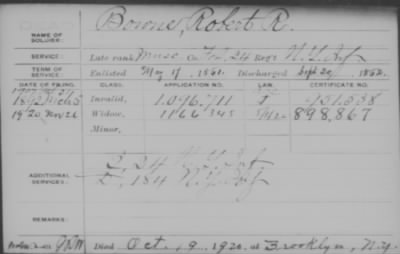 NAME OF SOLDIER: Bowne, Robert R.
SERVICE: Late rank Musc Co. 24 Regt N.Y. Inf
TERM OF SERVICE: Enlisted May 17, 1861. Discharged Sept 20, 1862.
DATE OF FILING. CLASS. APPLICATION NO. LAW. CERTIFICATE NO.
1892 Invalid, 1.096.711
1920 Nov 26 Widow, 1166345 898,867
Minor,
24 N.Y. Inf
ADDITIONAL SERVICES: 184 N.Y. Inf
REMARKS:
Died Oct. 19, 1920, at Brooklyn, N.Y.